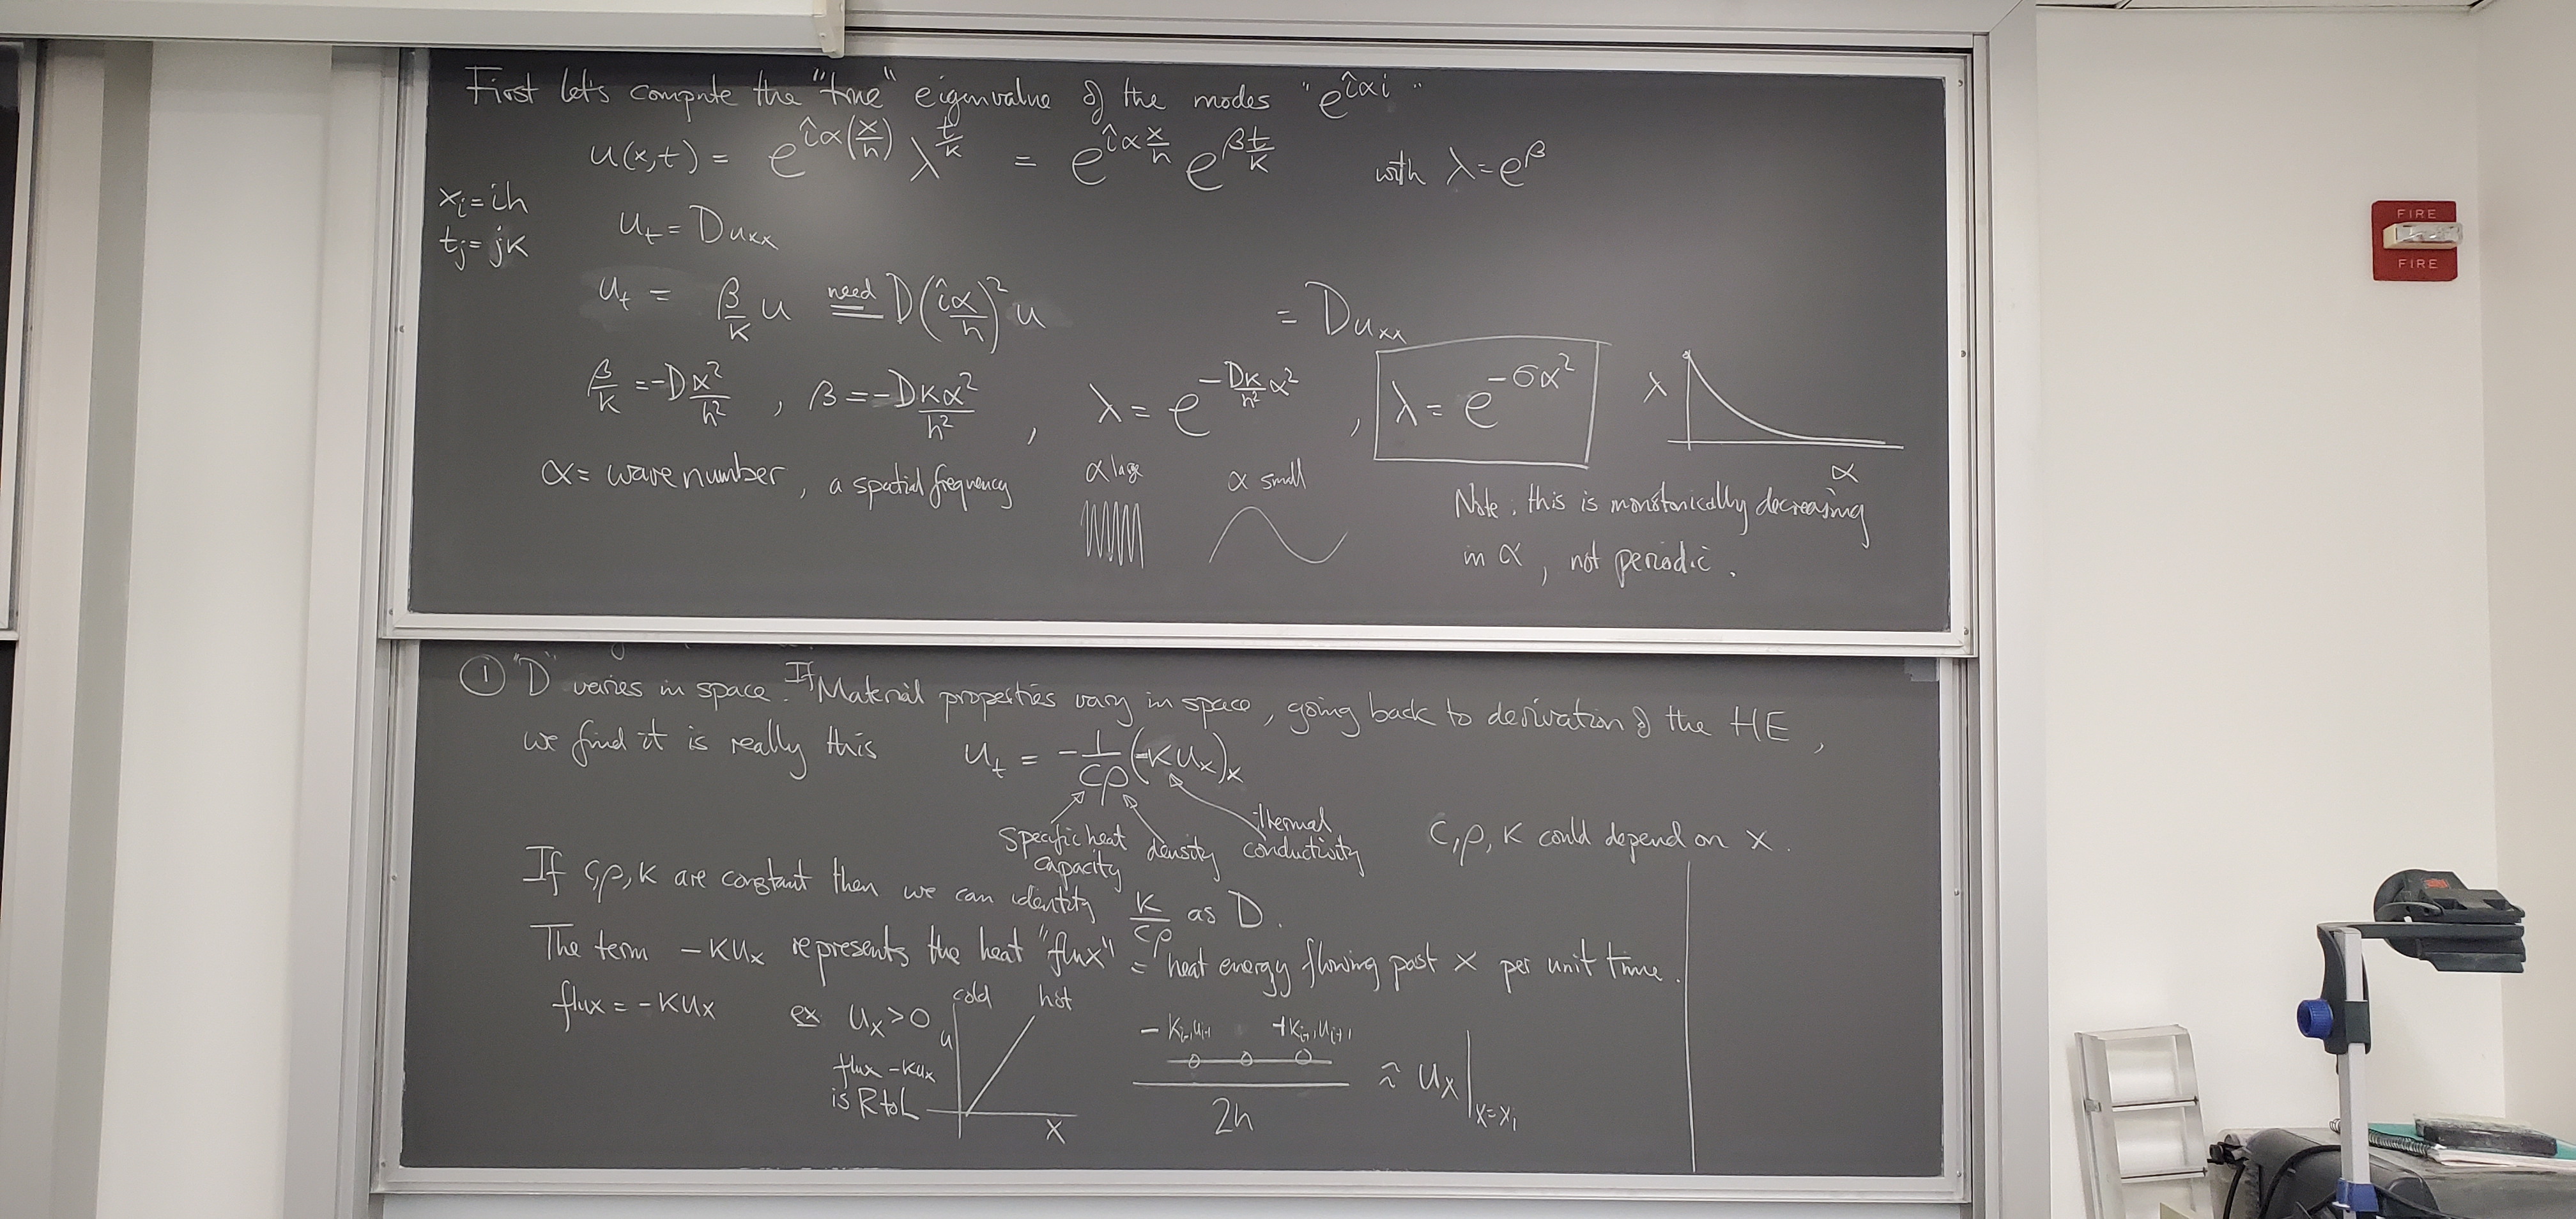 First let's compute the "true" eigenvalue of the modes "e^{îαi}"
u(x,t) = e^{îα(x/h)} λ^{t/k} = e^{îα x/h} e^{β t/k} with λ=e^β
x_i = ih
t_j = jk
u_t = Du_xx
u_t = β/k u need= D(îα/h)² u = Du_xx
β/k = -D α²/h² , β = -Dkα²/h² , λ = e^{-Dk/h² α²} , λ = e^{-σα²}
λ
α
α = wave number, a spatial frequency
α large
α small
Note: this is monotonically decreasing
in α, not periodic.
① "D" varies in space. If Material properties vary in space, going back to derivation of the HE,
we find it is really this u_t = -1/cρ (-Ku_x)_x
specific heat capacity
density
thermal conductivity
c, ρ, K could depend on x.
If c,ρ,K are constant then we can identify K/cρ as D.
The term -Ku_x represents the heat "flux" = heat energy flowing past x per unit time.
flux = -Ku_x
ex u_x > 0
flux -Ku_x
is R to L
cold hot
u
x
-K_{i-1}u_{i-1} +K_{i+1}u_{i+1}
2h
≈ u_x|_{x=x_i}
FIRE
FIRE